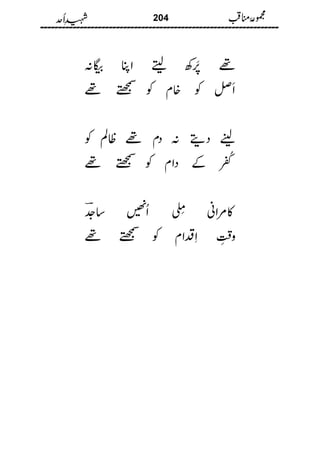 مجموعۂ مناقب 204 شہیدِ اُحد
تھے پَرَکھ لیتے اپنا بیگانہ
اَصل کو خام کو سمجھتے تھے
لینے دیتے نہ دم تھے ظالم کو
کُفر کے دام کو سمجھتے تھے
کامرانی مِلی اُنھیں ساجدؔ
وقتِ اِقدام کو سمجھتے تھے